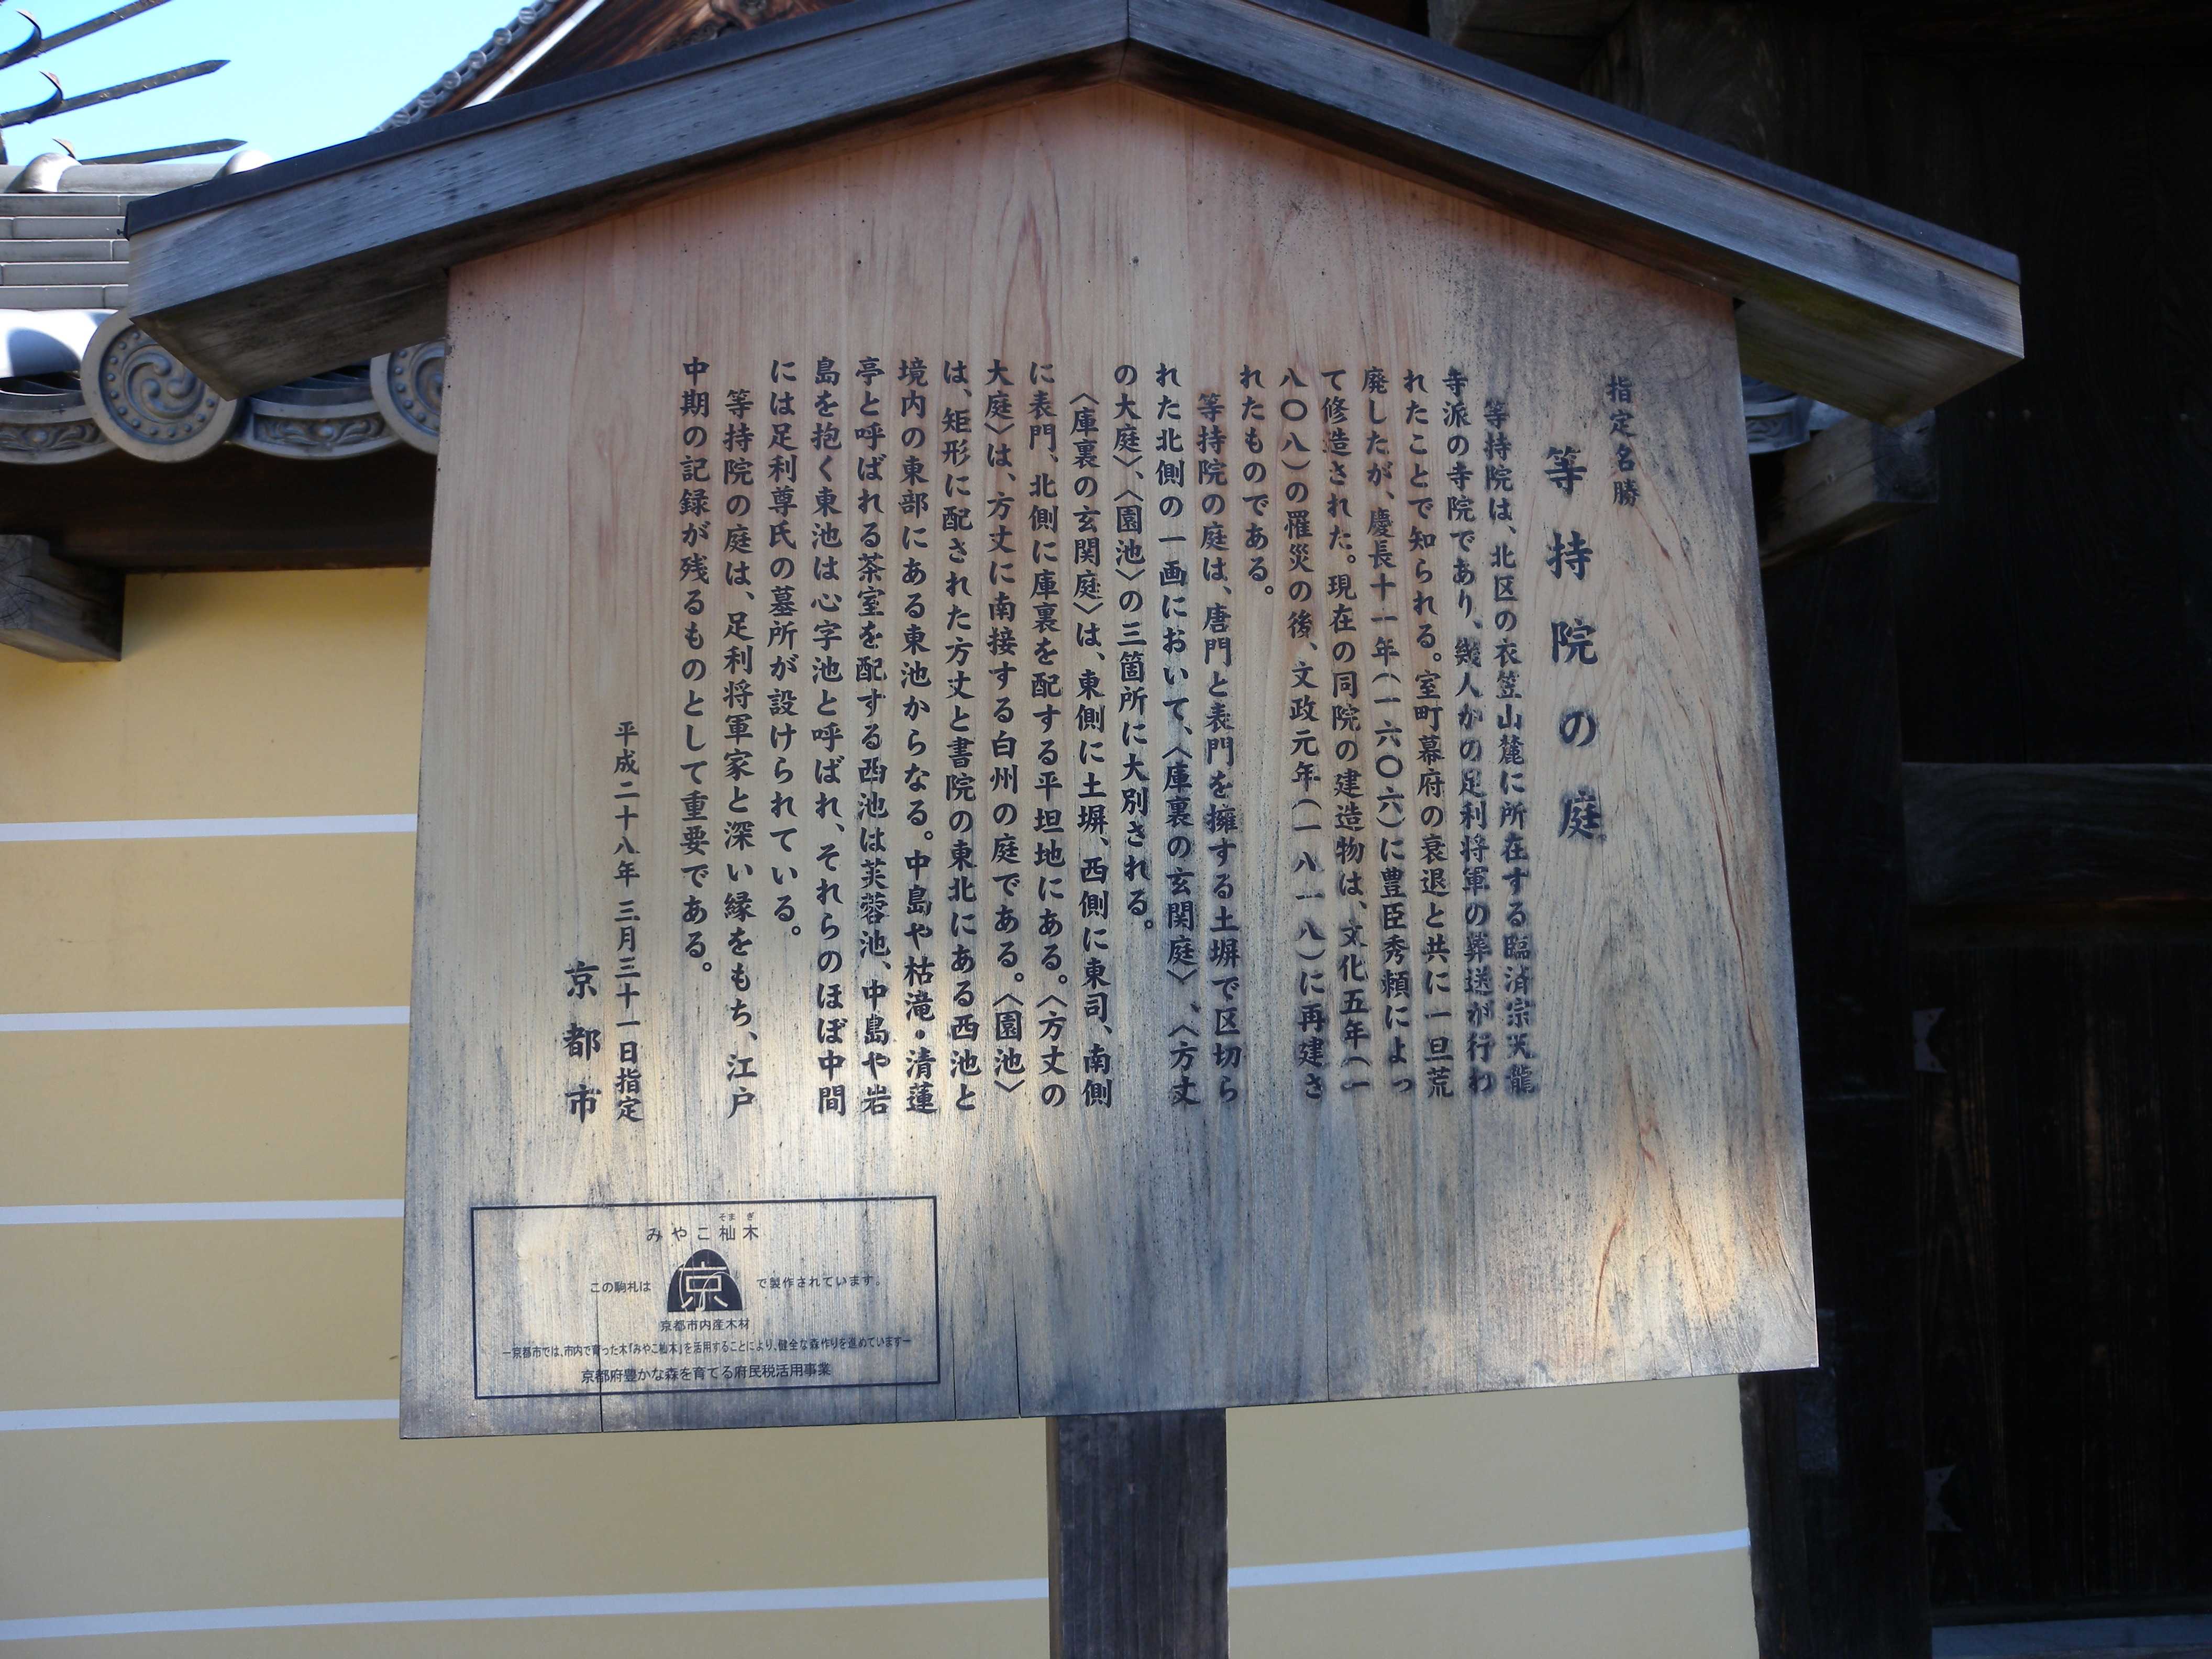 指定名勝
等持院の庭
等持院は、北区の衣笠山麓に所在する臨済宗天龍
寺派の寺院であり、幾人かの足利将軍の葬送が行わ
れたことで知られる。室町幕府の衰退と共に一旦荒
廃したが、慶長十一年(一六〇六)に豊臣秀頼によっ
て修造された。現在の同院の建造物は、文化五年(一
八〇八)の罹災の後、文政元年(一八一八)に再建さ
れたものである。
等持院の庭は、唐門と表門を擁する土塀で区切ら
れた北側の一画において、〈庫裏の玄関庭〉、〈方丈
の大庭〉、〈園池〉の三箇所に大別される。
〈庫裏の玄関庭〉は、東側に土塀、西側に東司、南側
に表門、北側に庫裏を配する平坦地にある。〈方丈の
大庭〉は、方丈に南接する白州の庭である。〈園池〉
は、矩形に配された方丈と書院の東北にある西池と
境内の東部にある東池からなる。中島や枯滝・清蓮
亭と呼ばれる茶室を配する西池は芙蓉池、中島や岩
島を抱く東池は心字池と呼ばれ、それらのほぼ中間
には足利尊氏の墓所が設けられている。
等持院の庭は、足利将軍家と深い縁をもち、江戸
中期の記録が残るものとして重要である。
平成二十八年三月三十一日指定
京都市
そま ぎ
みやこ杣木
この駒札は 京 で製作されています。
京都市内産木材
ー京都市では、市内で育った木「みやこ杣木」を活用することにより、健全な森作りを進めていますー
京都府豊かな森を育てる府民税活用事業